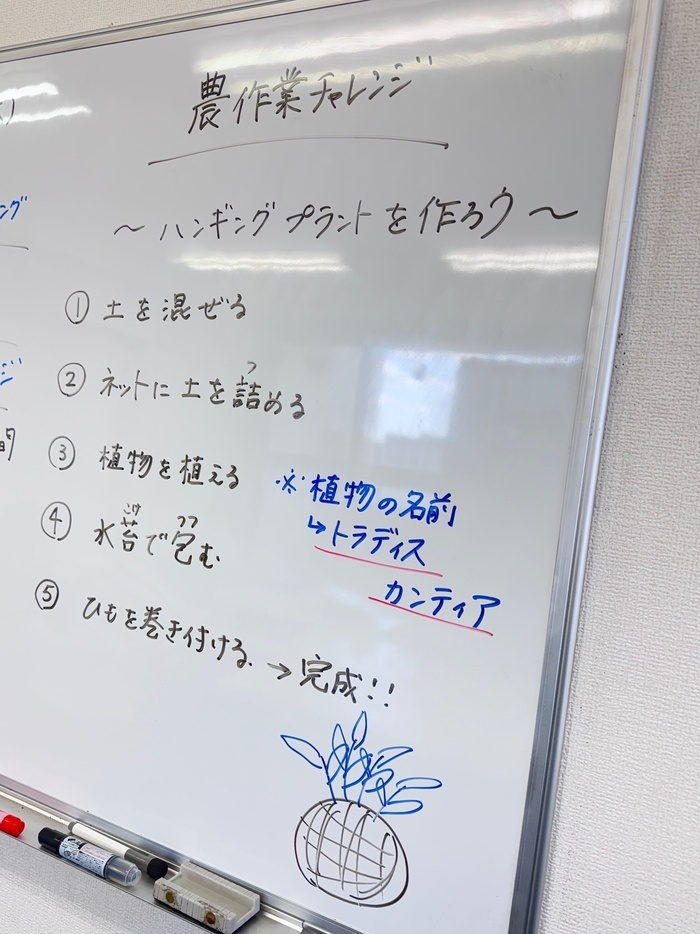 農作業チャレンジ
～ハンギングプラントを作ろう～
① 土を混ぜる
② ネットに土を詰める
つ
③ 植物を植える
※植物の名前
↳トラディス
カンティア
④ 水苔で包む
こけ
つつ
⑤ ひもを巻き付ける → 完成!!
ング
ジ
間